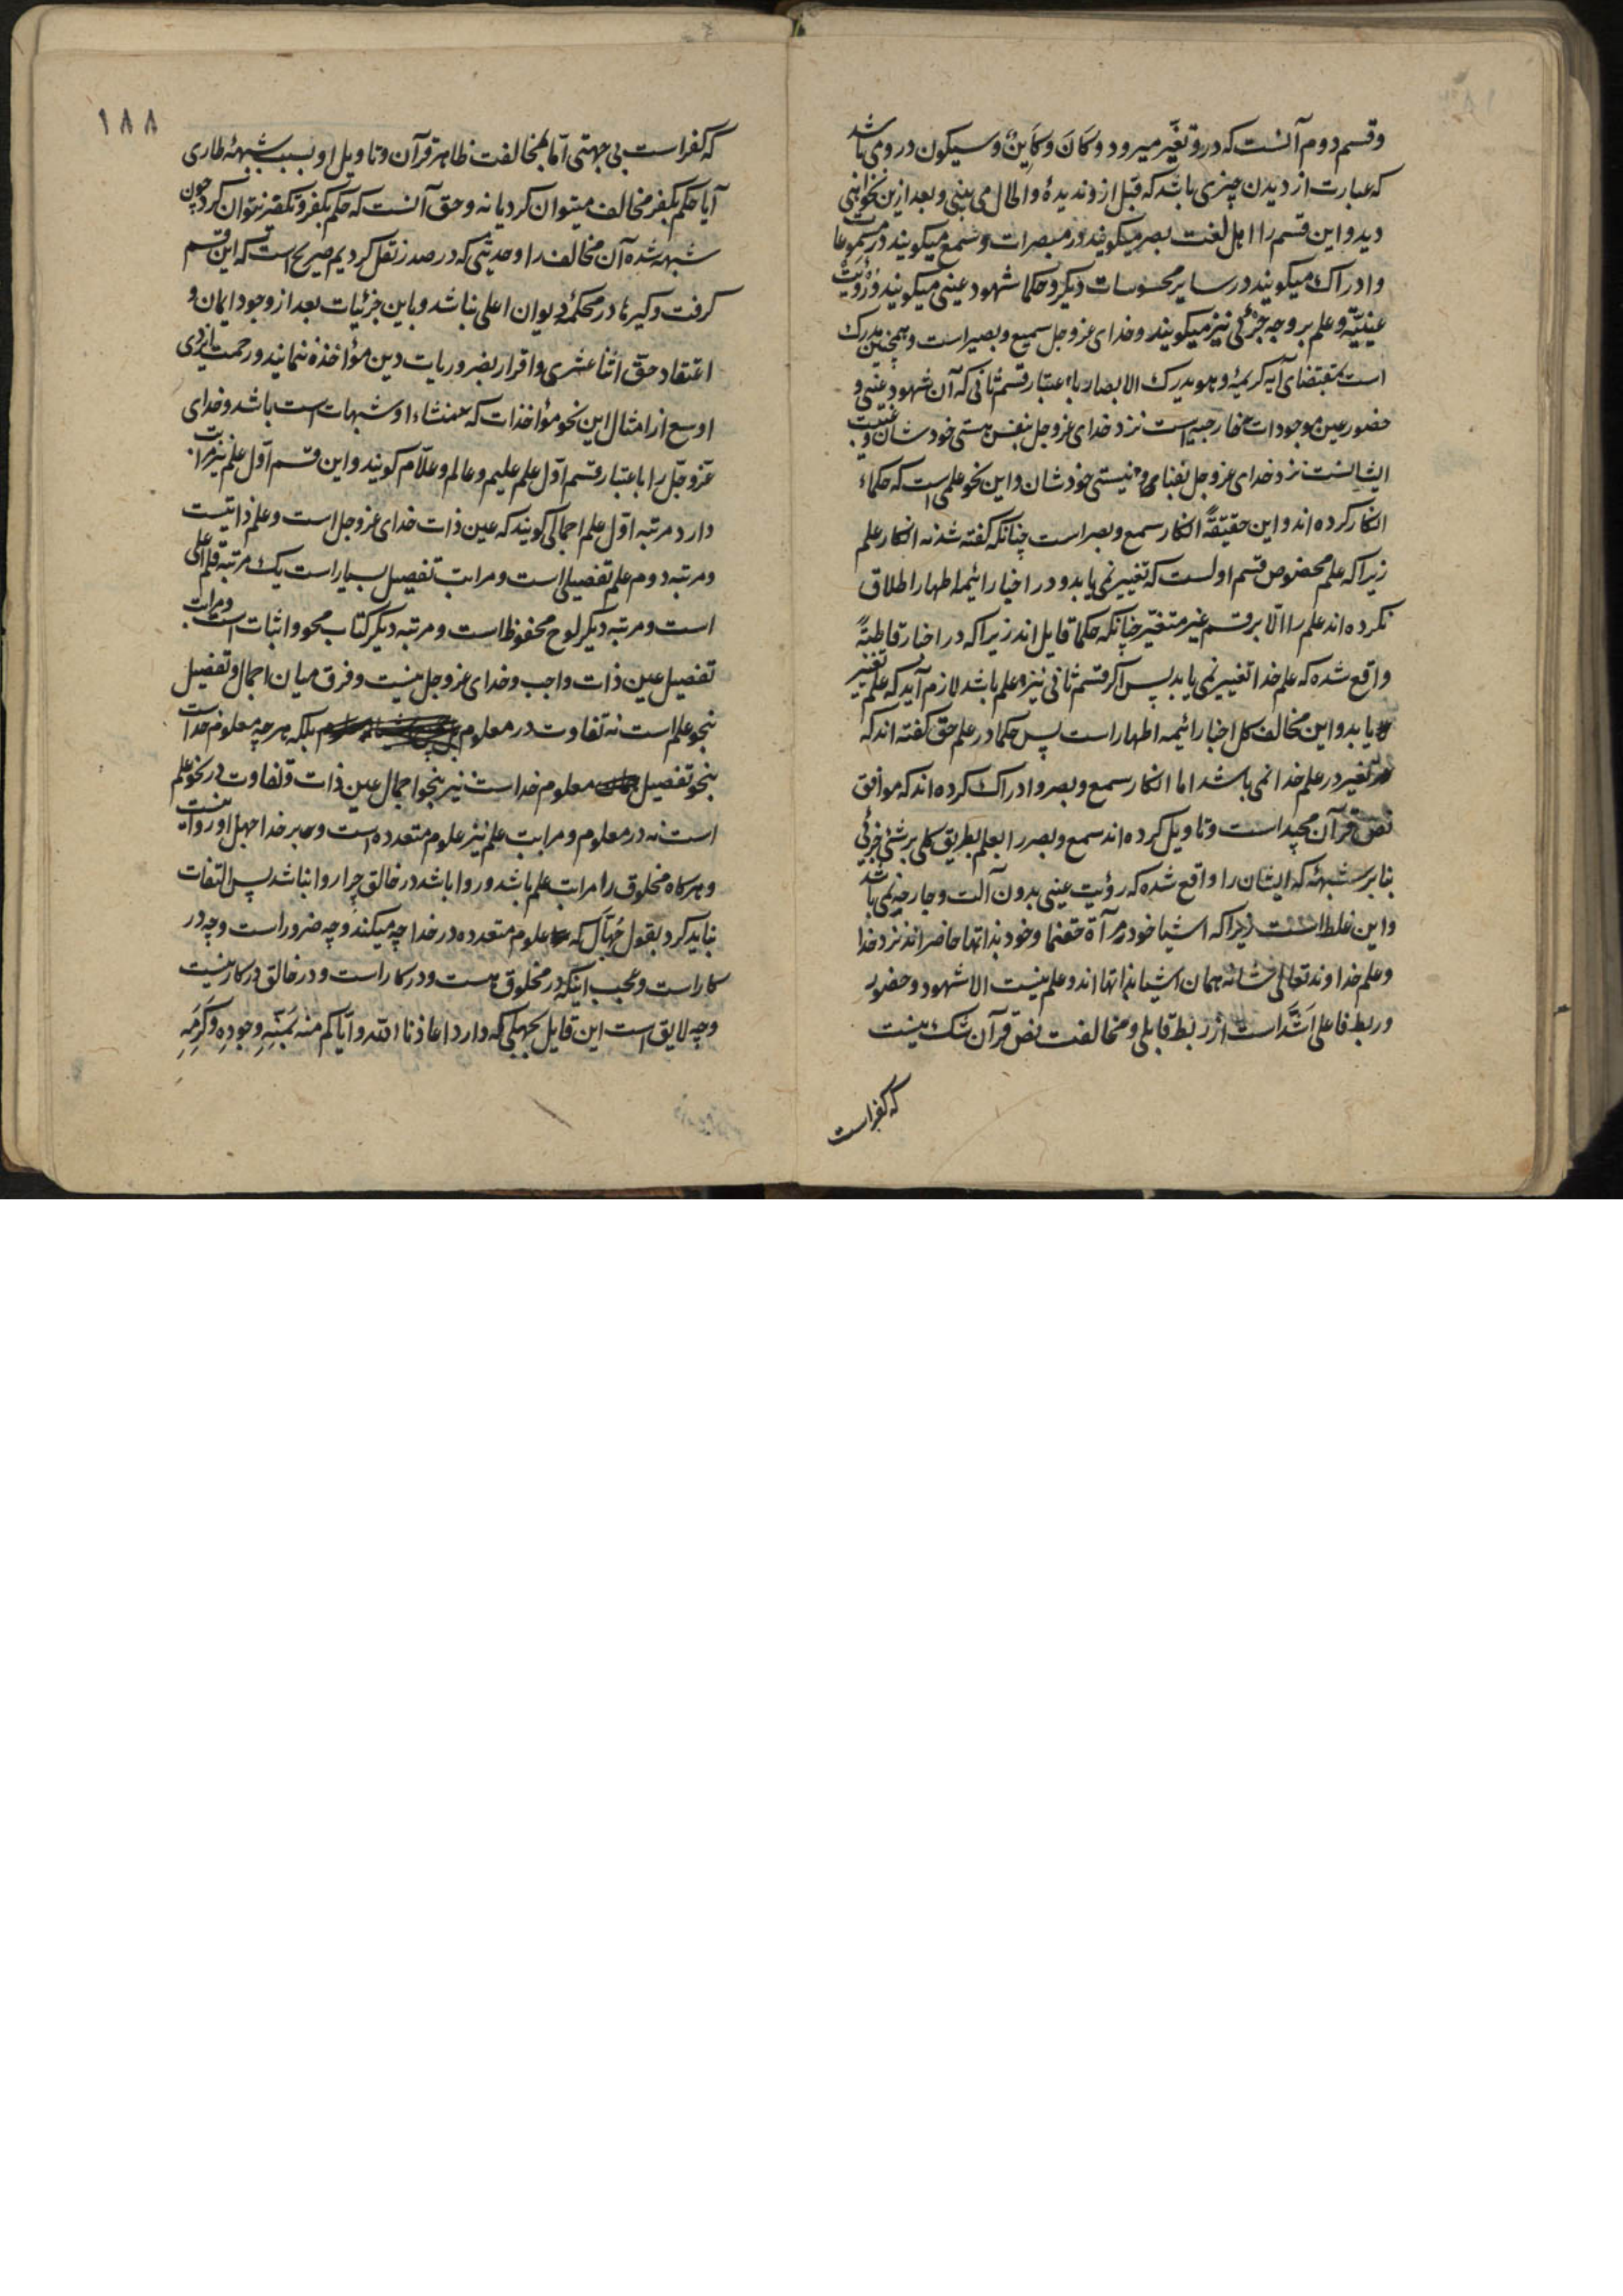 وقسم دوم آنست که درو تغیّر میرود و کَانَ و کَاَینٌ و سیکون در و می باشد
که عبارت از دیدن چیزی باشد که قبل ازو ندیدهٔ والحال می بینی و بعد ازین نخواهی
دید و این قسم را اهل لغت بصر میکویند در مبصرات و سمع میکویند در مسموعات
و ادراک میکویند در سایر محسوسات دیکر و حکما شهود عینی میکویند و رؤیت
عینیّه و علم بر وجه جزئی نیز میکویند و خدای عز و جل سمیع و بصیر است و همچنین مدرک
است بمقتضای آیه کریمهٔ و هو یدرک الابصار باعتبار قسم ثانی که آن شهود عینی و
حضور عین موجودات خارجیه است نزد خدای عز و جل بنفس هستی خودشان و غیبت
ایشانست نزد خدای عز و جل بفنا و نیستی خودشان و این نحو علمی است که حکماء
انکار کرده اند و این حقیقةً انکار سمع و بصر است چنانکه کفته شد نه انکار علم
زیرا که علم مخصوص قسم اولست که تغییر نمی یابد و در اخبار ائیمه اطهار اطلاق
نکرده اند علم را الّا بر قسم غیر متغیّر چنانکه حکما قایل اند زیرا که در اخبار قاطبةً
واقع شده که علم خدا تغییر نمی یابد پس اکر قسم ثانی نیز علم باشد لازم آید که علم تغییر
یابد و این مخالف کل اخبار ائیمه اطهار است پس حکما در علم حق کفته اند که
تغیر در علم خدا نمی باشد اما انکار سمع و بصر و ادراک کرده اند که موافق
نص قرآن مجید است و تاویل کرده اند سمع و بصر را بعلم بطریق کلی بر شئی جزئی
بنابر شبهئه که ایشان را واقع شده که رؤیت عینی بدون آلت و جارحه نمی باشد
و این غلط است زیرا که اشیا خود مرآة حقنما و خود بذاتها حاضر اند نزد خدا
و علم خداوند تعالی شانه همان اشیا بذاتها اند و علم نیست الا شهود و حضور
و ربط فاعلی اَشَدّ است از ربط قابلی و مخالفت نص قرآن شک نیست
که کفر است
١٨٨
که کفر است بی جهتی امّا مخالفت ظاهر قرآن و تاویل او بسبب شبههٔ طاری
آیا حکم بکفر مخالف میتوان کرد یا نه و حق آنست که حکم بکفر و تکفیر نتوان کرد چون
شبهه شده آن مخالف را و حدیثی که در صدر نقل کردیم صریح است که این قسم
کرفت و کیرها در محکمهٔ دیوان اعلی نباشد و باین جزئیات بعد از وجود ایمان و
اعتقاد حقّ اثنا عشری و اقرار بضروریات دین مؤاخذه ننمایند و رحمت ایزدی
اوسع از امثال این نحو مؤاخذات که منشاء او شبهات است باشد و خدای
عزّ و جلّ را باعتبار قسم اوّل علم علیم و عالم و علّام کویند و این قسم اوّل علم نیز مراتب
دارد مرتبه اوّل علم اجمالی کویند که عین ذات خدای عز و جل است و علم ذاتیست
و مرتبه دوم علم تفصیلی است و مراتب تفصیل بسیار است یک مرتبه قلم اعلی
است و مرتبه دیکر لوح محفوظ است و مرتبه دیکر کتاب محو و اثبات است و مراتب
تفصیل عین ذات واجب و خدای عز و جل نیست و فرق میان اجمال و تفصیل
بنحو علم است نه تفاوت در معلوم بلکه هر چه معلوم خداست
بنحو تفصیل معلوم خداست نیز بنحو اجمال عین ذات و تفاوت در نحو علم
است نه در معلوم و مراتب علم نیز علوم متعدده است و بر خدا جهل او روا نیست
و هرکاه مخلوق را مراتب علم باشد و روا باشد در خالق چرا روا نباشد پس التفات
نباید کرد بقول جُهّال که علوم متعدده در خدا چه میکند و چه ضرور است و چه در
کار است و عجب اینکه در مخلوق هست و در کار است و در خالق در کار نیست
و چه لایق است این قایل بجهلی که دارد اعاذنا الله و ایّاکم منه بمَنّهِ وجودِه وکَرَمِه